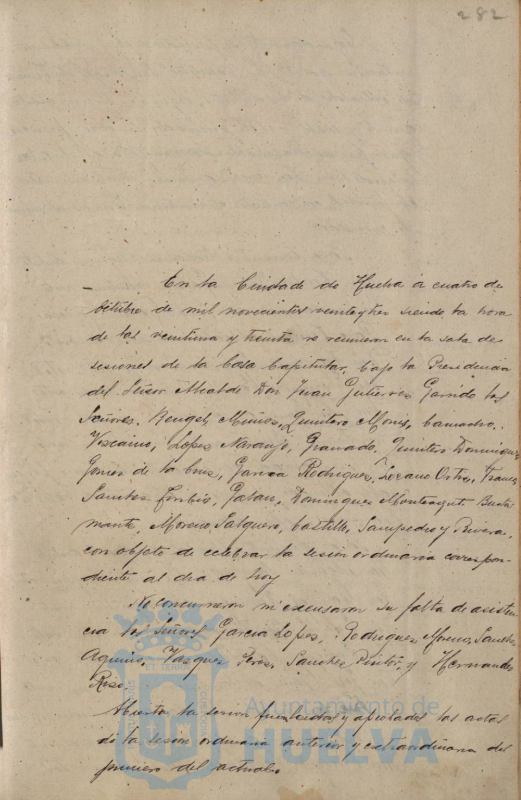 282
En la Ciudad de Huelva á cuatro de
Octubre de mil novecientos veintytres siendo la hora
de las veintiuna y treinta se reunieron en la sala de
sesiones de la Casa Capitular, bajo la Presidencia
del Señor Alcalde Don Juan Gutierrez Garrido los
Señores, Rengel, Muñoz, Quintero Mons, Camacho,
Viscaino, Lopez Naranjo, Granado, Quintero Dominguez
Gomez de la Cruz, Garcia Rodriguez, Lozano Ortiz, Franco,
Sanchez Toribio, Galan, Dominguez Monteagut, Busta
mante, Moreno Salguero, Castillo, Sampedro y Rivera,
con objeto de celebrar la sesion ordinaria correspon-
diente al dia de hoy
No concurrieron ni excusaron su falta de asisten
cia los Señores Garcia Lopez, Rodriguez Moreno, Sanchez
Aquino, Vazquez Perez, Sanchez Pintor, y Hernandez
Abierta la sesion fueron leidas y aprobadas las actas
de la sesion ordinaria anterior y extraordinaria del
primero del actual
Ayuntamiento de
HUELVA